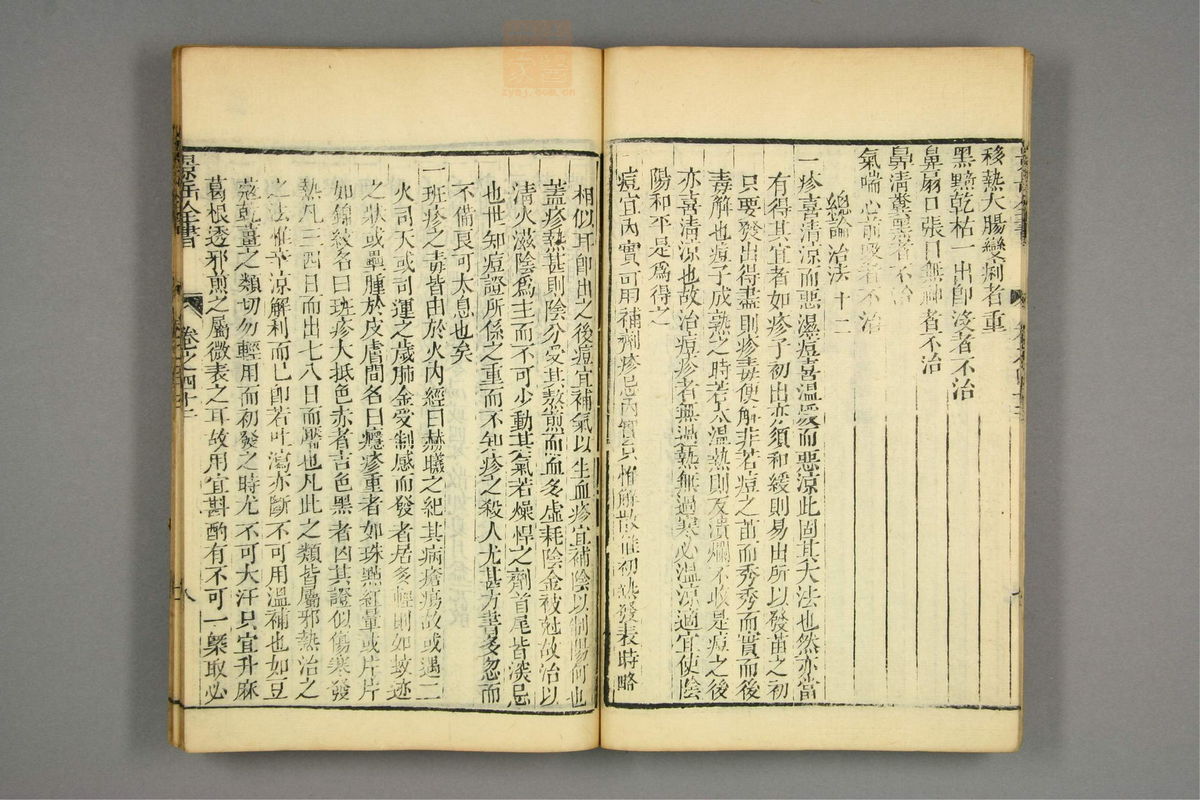 移熱大腸變痢者重
黑黯乾枯一出卽沒者不治
鼻扇口張目無神者不治
鼻清糞黑者不治
氣喘心前吸者不治
總論治法 十二
一疹喜清涼而惡濕痘喜溫煖而惡涼此固其大法也然亦當
有得其宜者如疹子初出亦須和緩則易出所以發苗之初
只要發出得盡則疹毒便解非若痘之苗而秀秀而實而後
毒解也痘子成熟之時若太溫熱則反潰爛不收是痘之後
亦喜清涼也故治痘疹者無過熱無過寒必溫涼適宜使陰
陽和平是爲得之
痘宜內實可用補劑疹忌內實只惟解散惟初熱發表時略
相似耳卽出之後痘宜補氣以生血疹宜補陰以制陽何也
蓋疹熱甚則陰分受其熬煎而血多虛耗陰金被尅故治以
清火滋陰爲主而不可少動其氣若燥悍之劑首尾皆深忌
也世知痘證所係之重而不知疹之殺人尤甚方書多忽而
不備良可太息也矣
一班疹之毒皆由於火內經曰赫曦之紀其病瘡瘍故或遇二
火司天或司運之歲肺金受制感而發者居多輕則如蚊迹
之狀或壘腫於皮膚間名曰癮疹重者如珠點紅暈或片片
如錦紋名曰班疹大抵色赤者吉色黑者凶其證似傷寒發
熱凡三四日而出七八日而靨也凡此之類皆屬邪熱治之
之法惟辛涼解利而已卽若吐瀉亦斷不可用溫補也如豆
蔻乾薑之類切勿輕用而初發之時尤不可大汗只宜升麻
葛根透邪煎之屬微表之耳故用宜斟酌有不可一槩取必
景岳全書
卷之四十二